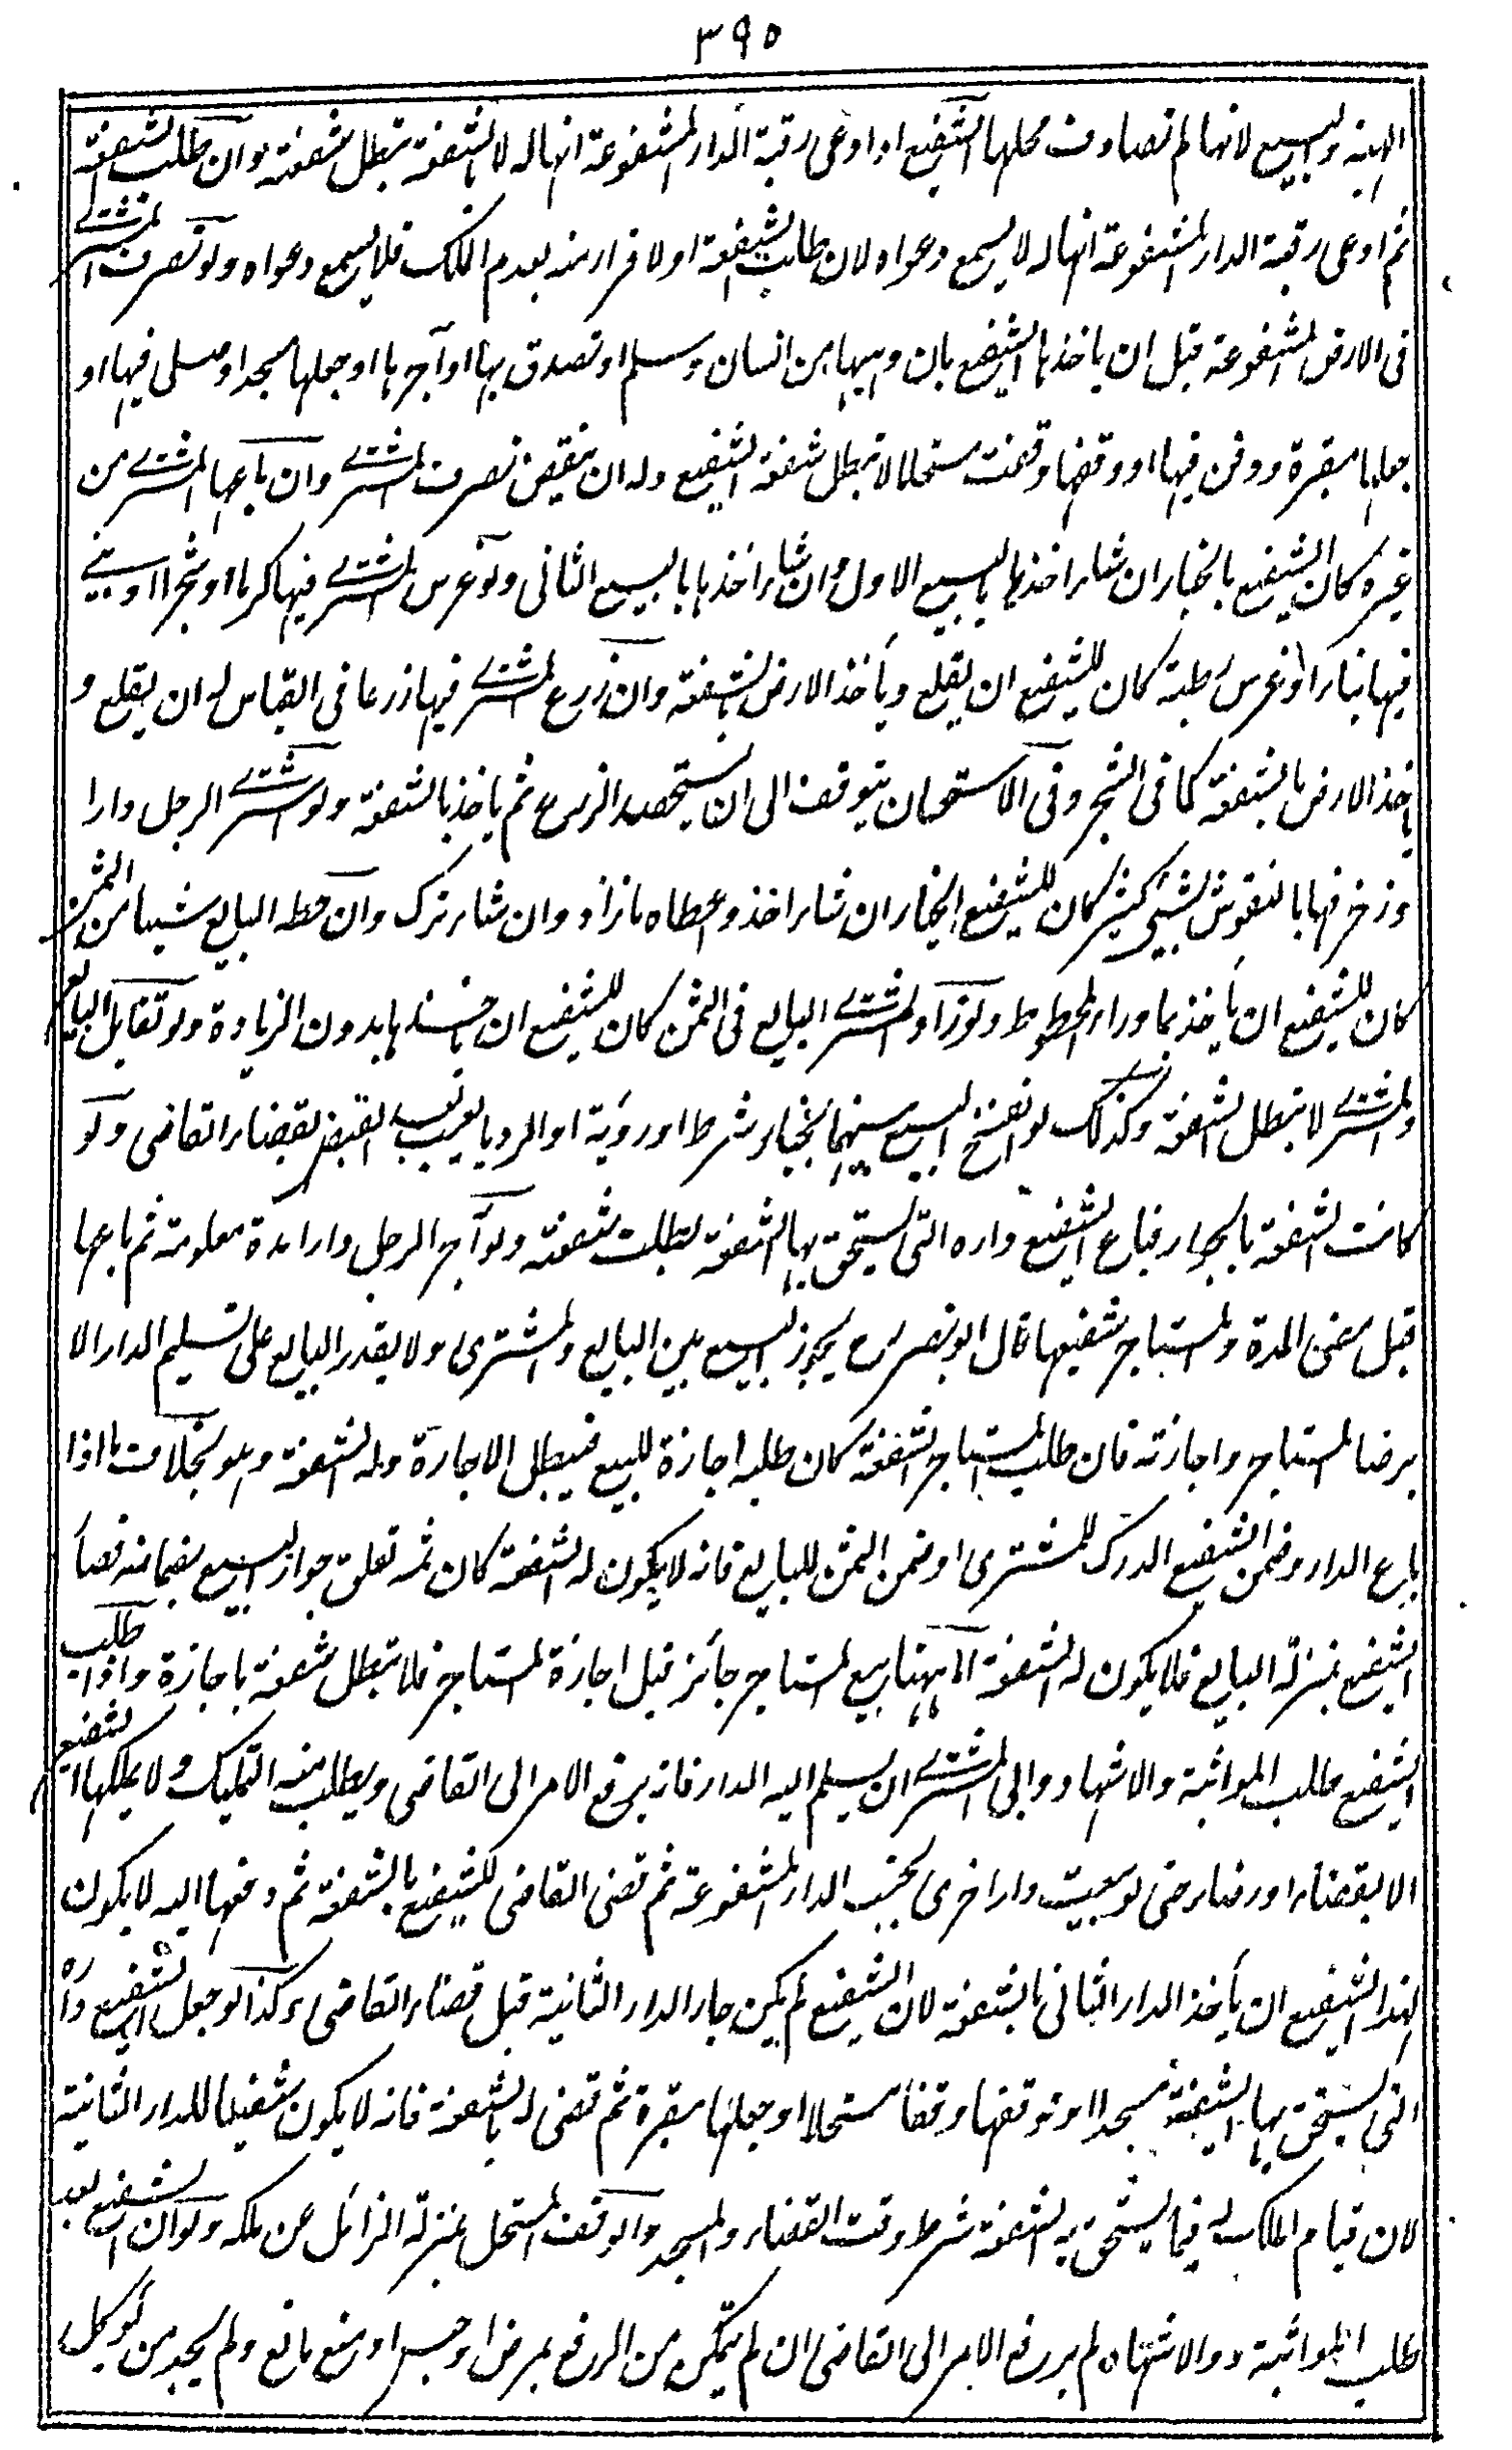 ٣٩٥
الهبة والبيع لانها لم تصادف محلها الشفيع اذا ادعى رقبة الدار المشفوعة انها له لا بالشفعة تبطل شفعته وان طلب الشفعة
ثم ادعى رقبة الدار المشفوعة انها له لا يسمع دعواه لان طلب الشفعة اولا اقرار منه بعدم الملك فلا يسمع دعواه ولو تصرف المشتري
فى الارض المشفوعة قبل ان ياخذها الشفيع بان وهبها من انسان وسلم او تصدق بها او آجرها او جعلها مسجدا وصلى فيها او
جعلها مقبرة ودفن فيها او وقفها وقفت مستحلا لا تبطل شفعة الشفيع وله ان ينقض تصرف المشتري وان باعها المشتري من
غيره كان الشفيع بالخيار ان شاء اخذها بالبيع الاول وان شاء اخذها بالبيع الثانى ولو غرس المشتري فيها كرما او شجرا او بنى
فيها بناء او غرس رطبة كان للشفيع ان يقلع ويأخذ الارض بالشفعة وان زرع المشتري فيها زرعا فى القياس له ان يقلع و
ياخذ الارض بالشفعة كما فى الشجر وفى الاستحسان يتوقف الى ان يستحصد الزرع ثم ياخذ بالشفعة ولو اشترى الرجل دارا
وزخرفها بالنقوش بشئ كثير كان للشفيع الخيار ان شاء اخذ واعطاه ما زاد وان شاء ترك وان حط البايع شيئا من الثمن
كان للشفيع ان يأخذ بما وراء المحطوط ولو زاد المشتري البايع فى الثمن كان للشفيع ان ياخذها بدون الزيادة ولو تقايل البايع
والمشتري لا تبطل الشفعة وكذلك لو انفسخ البيع بينهما بخيار شرط او رؤية او الرد بالعيب بعد القبض بقضاء القاضى ولو
كانت الشفعة بالجوار فباع الشفيع داره التى يستحق بها الشفعة بطلت شفعته ولو آجر الرجل دارا مدة معلومة ثم باعها
قبل مضى المدة والمستاجر شفيعها قال ابو نصر رح يجوز البيع بين البايع والمشترى ولا يقدر البايع على تسليم الدار الا
برضا المستاجر واجازته فان طلب المستاجر الشفعة كان طلبه اجازة للبيع فيبطل الاجارة وله الشفعة وهو بخلاف ما اذا
باع الدار وضمن الشفيع الدرك للمشترى او ضمن الثمن للبايع فانه لا يكون له الشفعة كان ثمه تعلق جواز البيع بضمانه فصار
الشفيع بمنزلة البايع فلا يكون له الشفعة اما ههنا بيع المستاجر جائز قبل اجازة المستاجر فلا تبطل شفعته باجازة واذا طلب
الشفيع طلب المواثبة والاشهاد وابى المشتري ان يسلم اليه الدار فانه يرفع الامر الى القاضى ويطلب منه التمليك ولا يملكها الشفيع
الا بقضاء او رضاء حتى لو بيعت دار اخرى بجنب الدار المشفوعة ثم قضى القاضى للشفيع بالشفعة ثم دفعها اليه لا يكون
لهذا الشفيع ان يأخذ الدار الثانى بالشفعة لان الشفيع لم يكن جار الدار الثانية قبل قضاء القاضى وكذا لو جعل الشفيع داره
التى يستحق بها الشفعة مسجدا او توقفها وقفا مستحلا او جعلها مقبرة ثم قضى له بالشفعة فانه لا يكون شفيعا للدار الثانية
لان قيام الملك له فيما يستحق به الشفعة شرط وقت القضاء والمسجد والوقف المستحل بمنزلة الزائل عن ملكه ولو ان الشفيع بعد
طلب المواثبة والاشتهاد لم يرفع الامر الى القاضى ان لم يتمكن من الرفع بمرض او حبس او منع مانع ولم يجد من يوكل